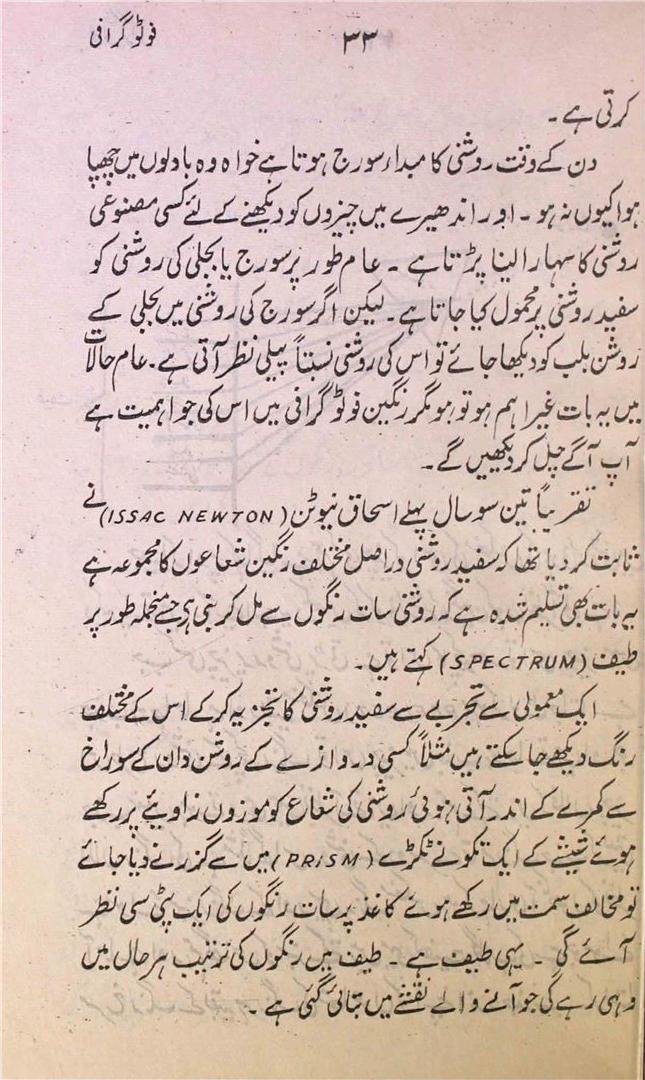 فوٹو گرافی
۳۳
کرتی ہے۔
دن کے وقت روشنی کا مبداء سورج ہوتا ہے خواہ وہ بادلوں میں چھپا
ہوا کیوں نہ ہو۔ اور اندھیرے میں چیزوں کو دیکھنے کے لئے کسی مصنوعی
روشنی کا سہارا لینا پڑتا ہے۔ عام طور پر سورج یا بجلی کی روشنی کو
سفید روشنی پر محمول کیا جاتا ہے۔ لیکن اگر سورج کی روشنی میں بجلی کے
روشن بلب کو دیکھا جائے تو اس کی روشنی نسبتاً پیلی نظر آتی ہے۔ عام حالات
میں یہ بات غیر اہم ہو تو ہو مگر رنگین فوٹو گرافی میں اس کی جو اہمیت ہے
آپ آگے چل کر دیکھیں گے۔
تقریباً تین سو سال پہلے اسحاق نیوٹن (ISSAC NEWTON) نے
ثابت کر دیا تھا کہ سفید روشنی دراصل مختلف رنگین شعاعوں کا مجموعہ ہے
یہ بات بھی تسلیم شدہ ہے کہ روشنی سات رنگوں سے مل کر بنی ہے جسے منجملہ طور پر
طیف (SPECTRUM) کہتے ہیں۔
ایک معمولی سے تجربے سے سفید روشنی کا تجزیہ کر کے اس کے مختلف
رنگ دیکھے جا سکتے ہیں مثلاً کسی دروازے کے روشن دان کے سوراخ
سے کمرے کے اندر آتی ہوئی روشنی کی شعاع کو موزوں زاویئے پر رکھے
ہوئے شیشے کے ایک تکونے ٹکڑے (PRISM) میں سے گزرنے دیا جائے
تو مخالف سمت میں رکھے ہوئے کاغذ پر سات رنگوں کی ایک پٹی سی نظر
آئے گی۔ یہی طیف ہے۔ طیف میں رنگوں کی ترتیب ہر حال میں
وہی رہے گی جو آنے والے نقشے میں بتائی گئی ہے۔